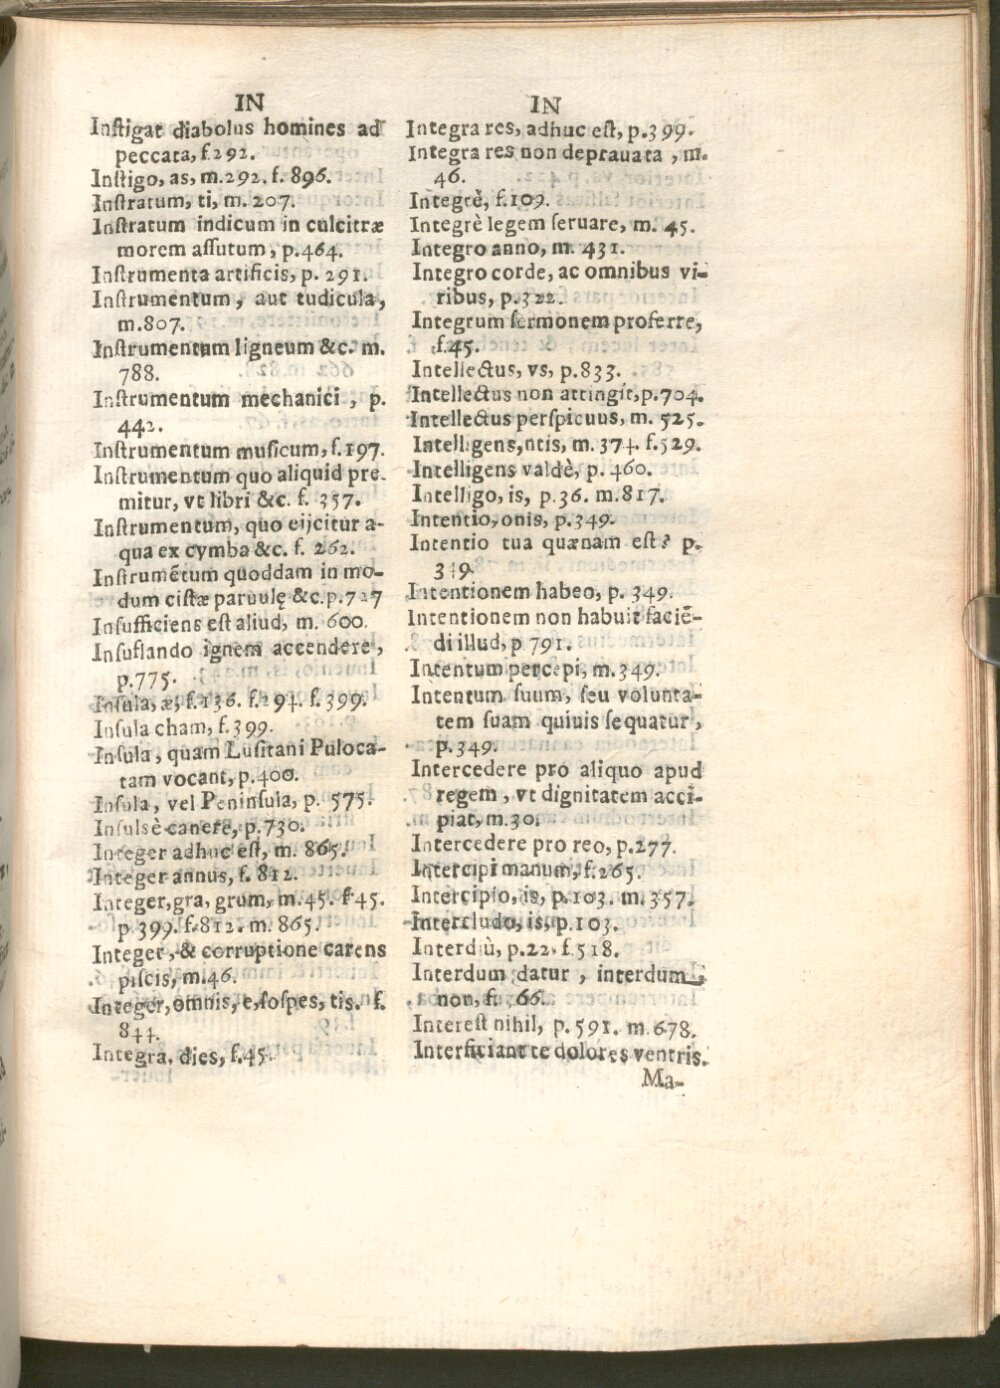 IN
Instigat diabolus homines ad
peccata, f.292.
Instigo, as, m.292. f. 896.
Instratum, ti, m. 207.
Instratum indicum in culcitræ
morem assutum, p.464.
Instrumenta artificis, p. 291.
Instrumentum, aut tudicula,
m.807.
Instrumentum ligneum &c. m.
788.
Instrumentum mechanici, p.
442.
Instrumentum musicum, f.197.
Instrumentum quo aliquid pre-
mitur, vt libri &c. f. 357.
Instrumentum, quo eijcitur a-
qua ex cymba &c. f. 262.
Instrumẽtum quoddam in mo-
dum cistæ paruulę &c.p.727
Insufficiens est aliud, m. 600.
Insuflando ignem accendere,
p.775.
Insula, æ, f.136. f.294. f.399.
Insula cham, f.399.
Insula, quam Lusitani Puloca-
tam vocant, p.400.
Insula, vel Peninsula, p. 575.
Insulsè canere, p.730.
Integer adhuc est, m. 865.
Integer annus, f. 812.
Integer,gra, grum, m.45. f 45.
p.399. f.812. m. 865.
Integer, & corruptione carens
piscis, m.46.
Integer, omnis, e, sospes, tis. f.
844.
Integra, dies, f.45.
IN
Integra res, adhuc est, p.399.
Integra res non deprauata, m.
46.
Integrè, f.109.
Integrè legem seruare, m. 45.
Integro anno, m. 431.
Integro corde, ac omnibus vi-
ribus, p.322.
Integrum sermonem proferre,
f.45.
Intellectus, vs, p.833.
Intellectus non attingit,p.704.
Intellectus perspicuus, m. 525.
Intelligens,ntis, m. 374. f.529.
Intelligens valdè, p. 460.
Intelligo, is, p.36. m.817.
Intentio, onis, p.349.
Intentio tua quænam est? p.
349.
Intentionem habeo, p. 349.
Intentionem non habuit faciẽ-
di illud, p 791.
Intentum percepi, m.349.
Intentum suum, seu volunta-
tem suam quiuis sequatur,
p.349.
Intercedere pro aliquo apud
regem, vt dignitatem acci-
piat, m.30.
Intercedere pro reo, p.277.
Intercipi manum, f.265.
Intercipio, is, p.103. m.357.
Intercludo, is, p.103.
Interdiù, p.22. f.518.
Interdum datur, interdum
non, f. 66.
Interest nihil, p.591. m.678.
Interficiant te dolores ventris.
Ma-